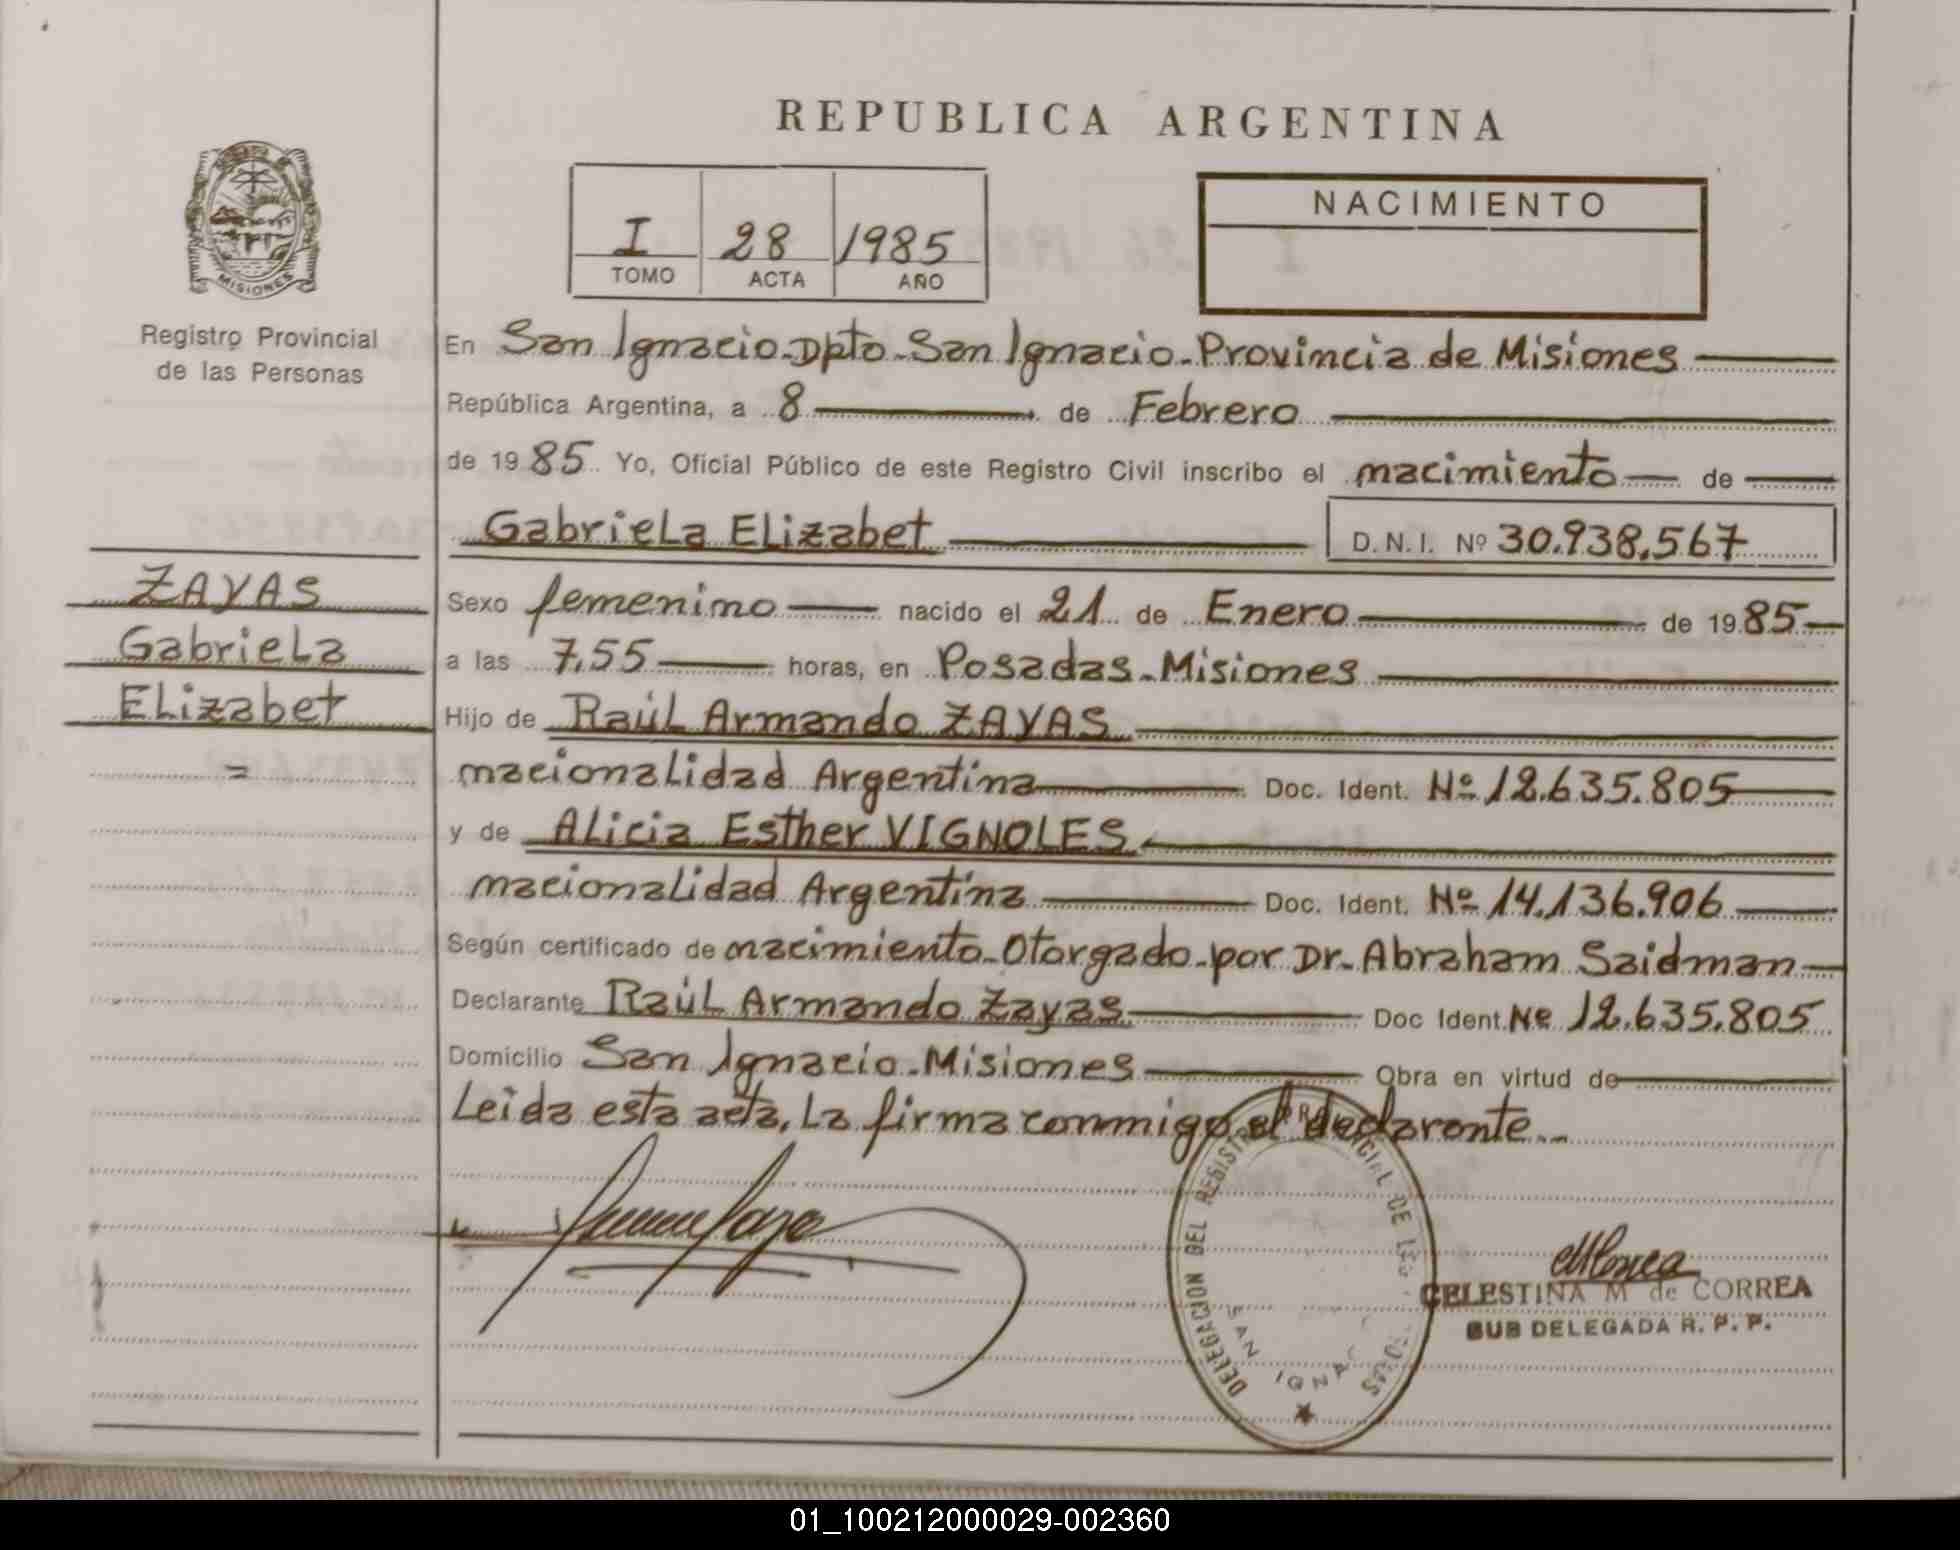 REPUBLICA ARGENTINA
MISIONES
Registro Provincial
de las Personas
I 28 1985
TOMO ACTA AÑO
NACIMIENTO
En San Ignacio-Dpto-San Ignacio-Provincia de Misiones
República Argentina, a 8 de Febrero
de 1985 Yo, Oficial Público de este Registro Civil inscribo el nacimiento de
Gabriela Elizabet D.N.I. Nº 30.938.567
ZAYAS
Gabriela
Elizabet
=
Sexo femenino nacido el 21 de Enero de 1985
a las 7,55 horas, en Posadas-Misiones
Hijo de Raúl Armando ZAYAS
nacionalidad Argentina Doc. Ident. Nº 12.635.805
y de Alicia Esther VIGNOLES
nacionalidad Argentina Doc. Ident. Nº 14.136.906
Según certificado de nacimiento-Otorgado-por Dr-Abraham Saidman
Declarante Raúl Armando Zayas Doc Ident. Nº 12.635.805
Domicilio San Ignacio-Misiones Obra en virtud de
Leida esta acta, La firma conmigo el declarante
DELEGACION DEL REGISTRO PROVINCIAL DE
SAN
CELESTINA M de CORREA
SUB DELEGADA R. P. P.
01_100212000029-002360